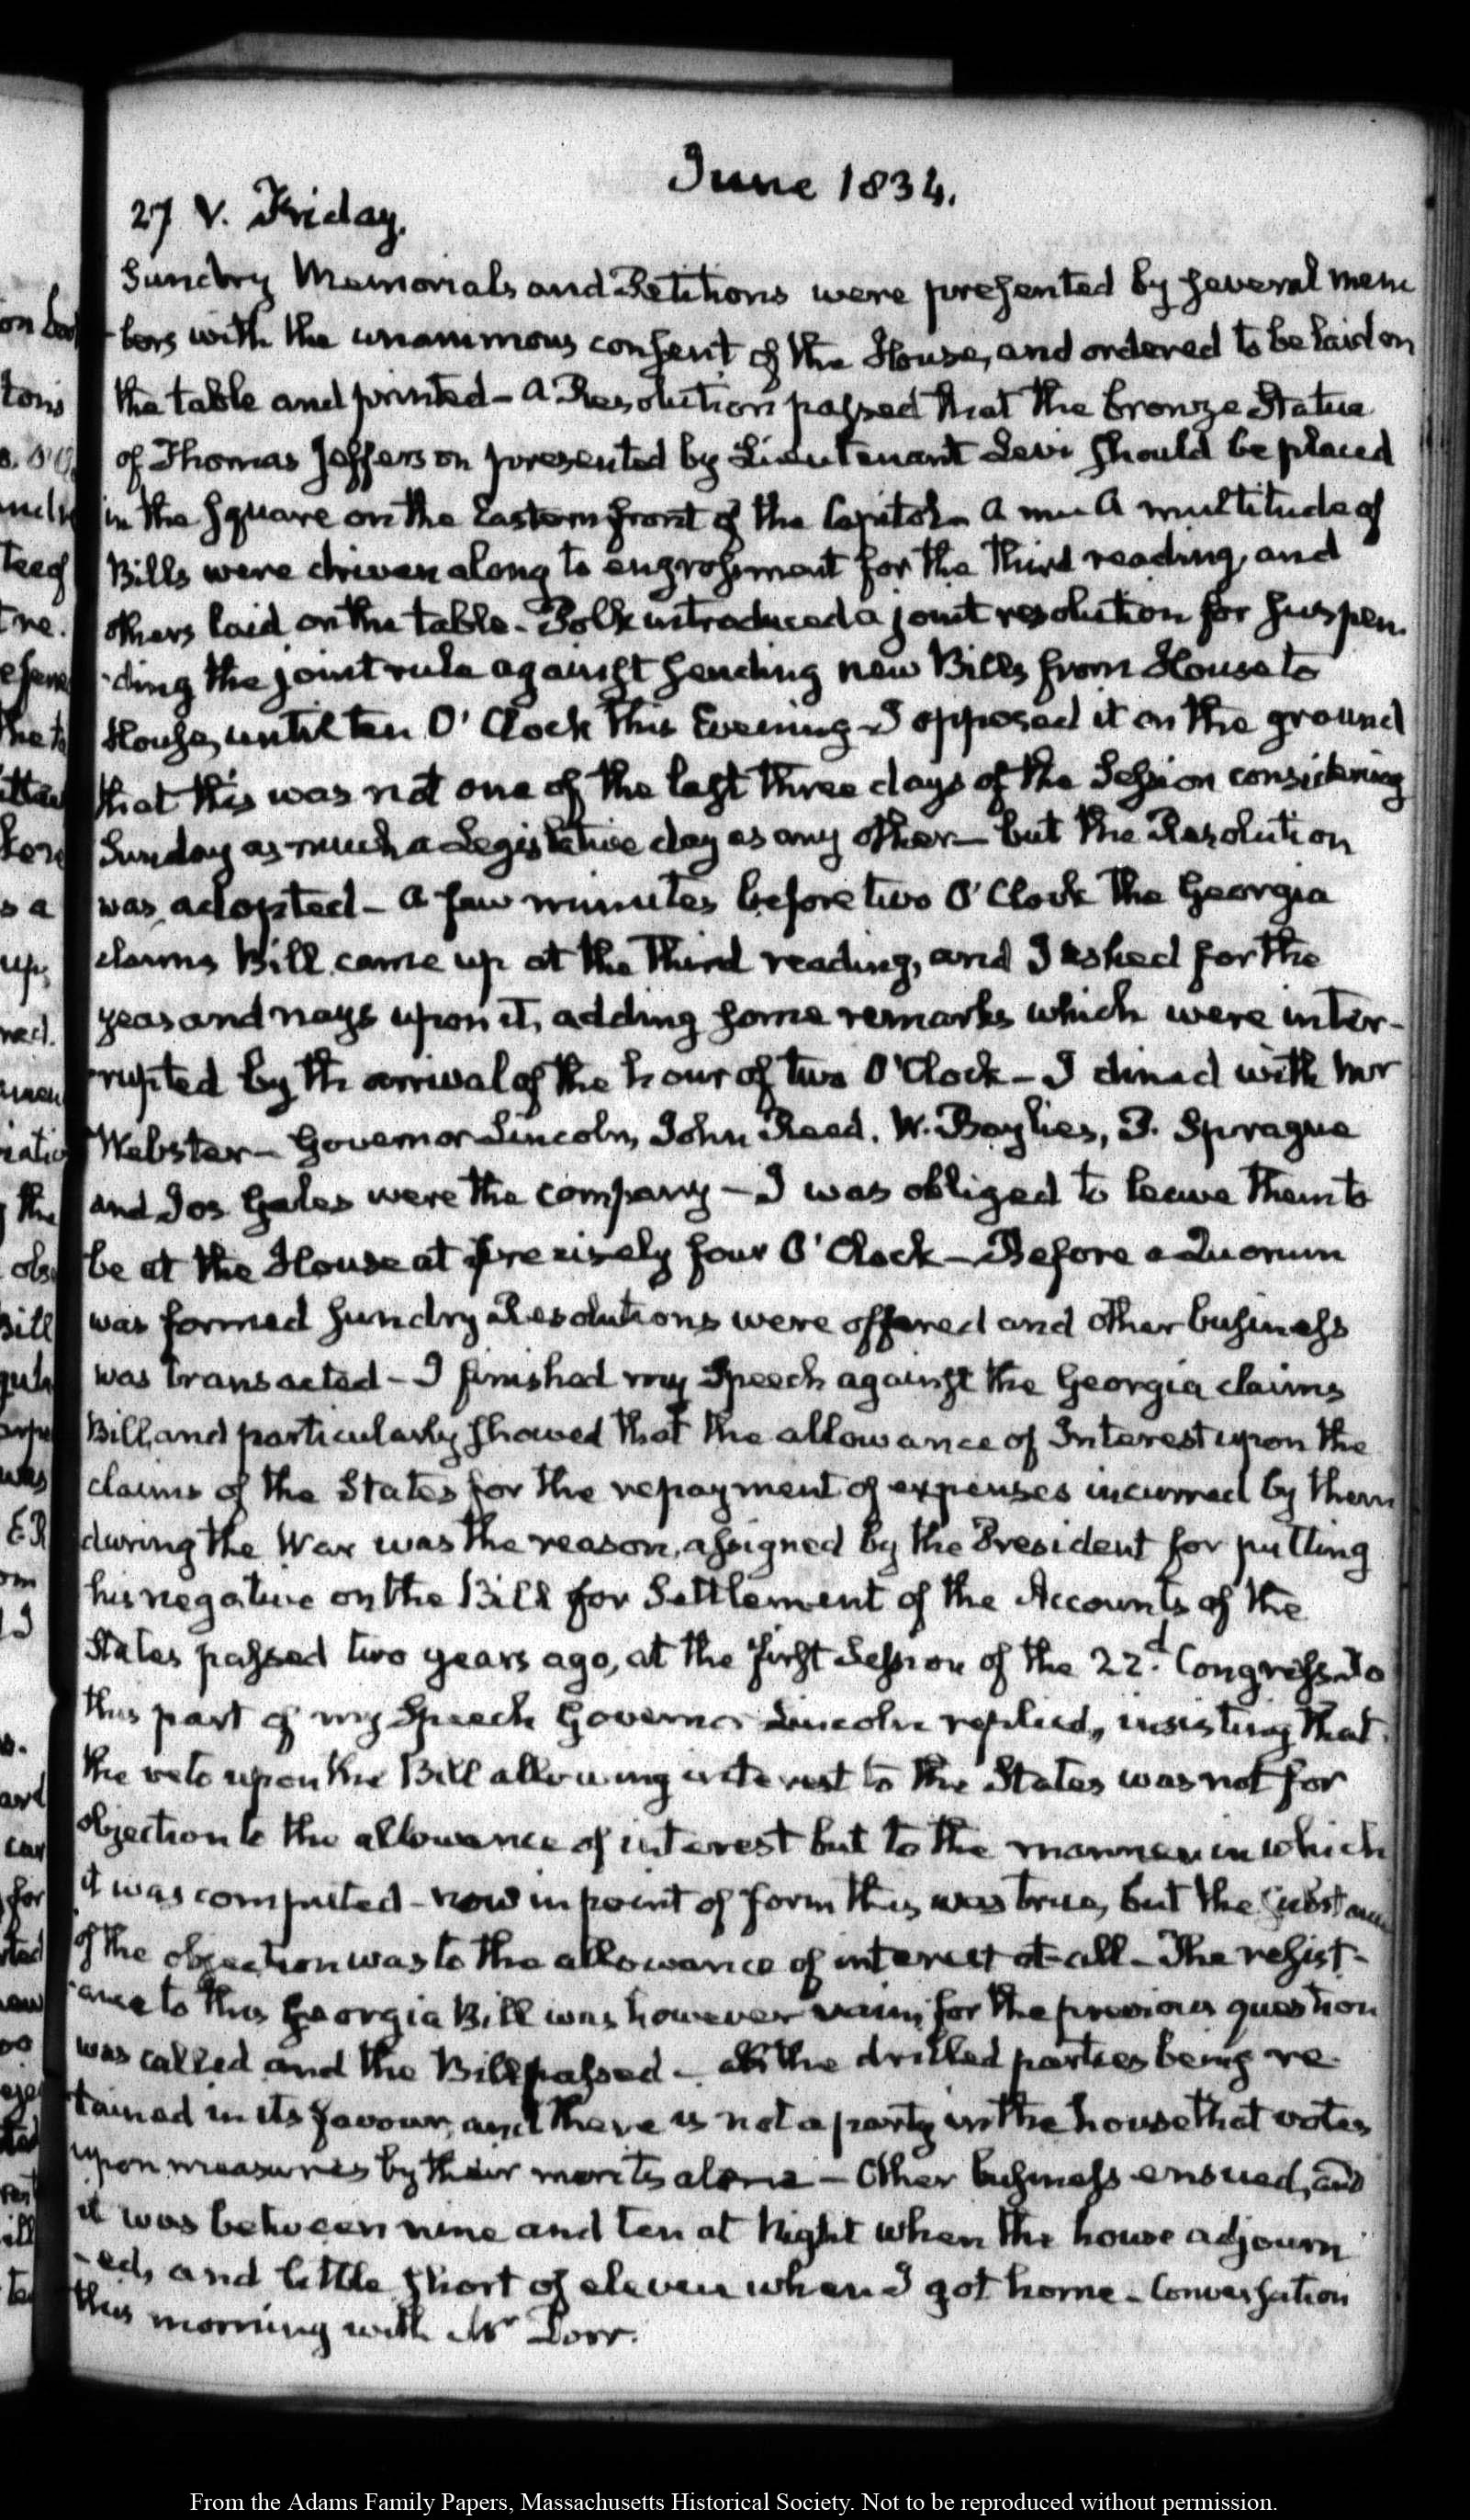 June 1834.
27 V. Friday.
Sundry Memorials and Petitions were presented by several mem
-bers with the unanimous consent of the House, and ordered to be laid on
the table and printed - A Resolution passed that the bronze Statue
of Thomas Jefferson presented by Lieutenant Levi should be placed
in the square on the Eastern front of the Capitol - A multitude of
Bills were driven along to engrossment for the third reading, and
others laid on the table - Polk introduced a joint resolution for suspen
-ding the joint rule against sending new Bills from House to
House, until ten O'Clock this Evening - I opposed it on the ground
that this was not one of the last three days of the Session considering
Sunday as much a Legislative day as any other - but the Resolution
was adopted - A few minutes before two O'Clock the Georgia
claims Bill came up at the third reading, and I asked for the
yeas and nays upon it, adding some remarks which were inter-
rupted by th arrival of the hour of two O'Clock - I dined with Mr
Webster - Governor Lincoln, John Reed, W. Baylies, P. Sprague
and Jos Gales were the company - I was obliged to leave them to
be at the House at precisely four O'Clock - Before a Quorum
was formed sundry Resolutions were offered and other business
was transacted - I finished my Speech against the Georgia claims
Bill, and particularly showed that the allowance of Interest upon the
claims of the States for the repayment of expenses incurred by them
during the War was the reason, assigned by the President for putting
his negative on the Bill for Settlement of the Accounts of the
States passed two years ago, at the first Session of the 22.d Congress. To
this part of my Speech Governor Lincoln replied, insisting that
the veto upon the Bill allowing interest to the States was not for
objection to the allowance of interest but to the manner in which
it was computed - now in point of form this was true, but the substance
of the objection was to the allowance of interest at all - The resist-
-ance to this Georgia Bill was however vain; for the previous question
was called and the Bill passed - all the drilled parties being re-
tained in its favour, and there is not a party in the house that votes
upon measures by their merits alone - Other business ensued, and
it was between nine and ten at Night when the house adjourn
-ed, and little short of eleven when I got home - Conversation
this morning with Mr Dorr.
From the Adams Family Papers, Massachusetts Historical Society. Not to be reproduced without permission.